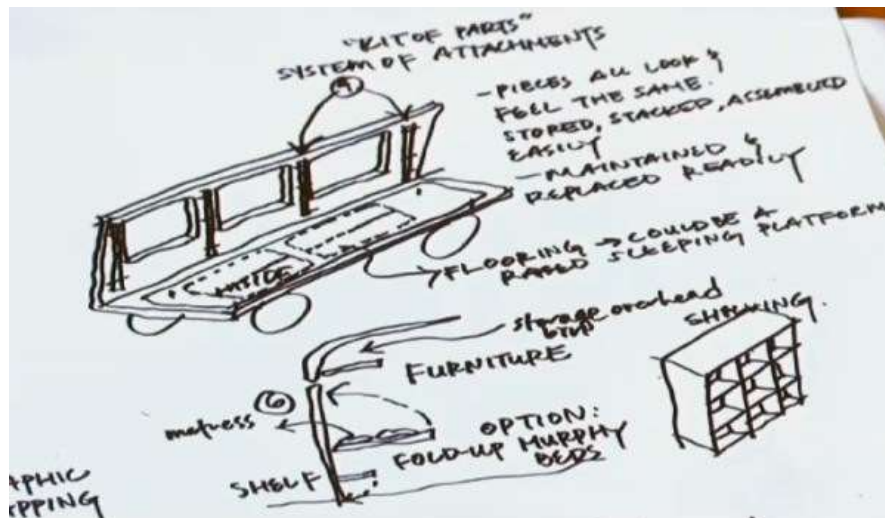 "KIT OF PARTS"
SYSTEM OF ATTACHMENTS
- PIECES ALL LOOK &
FEEL THE SAME.
STORED, STACKED, ASSEMBLED
EASILY
- MAINTAINED &
REPLACED READILY
FLOORING → COULD BE A
RAISED SLEEPING PLATFORM
storage overhead
FURNITURE
6
matress
OPTION:
FOLD-UP MURPHY
BEDS
SHELF
APHIC
PPING